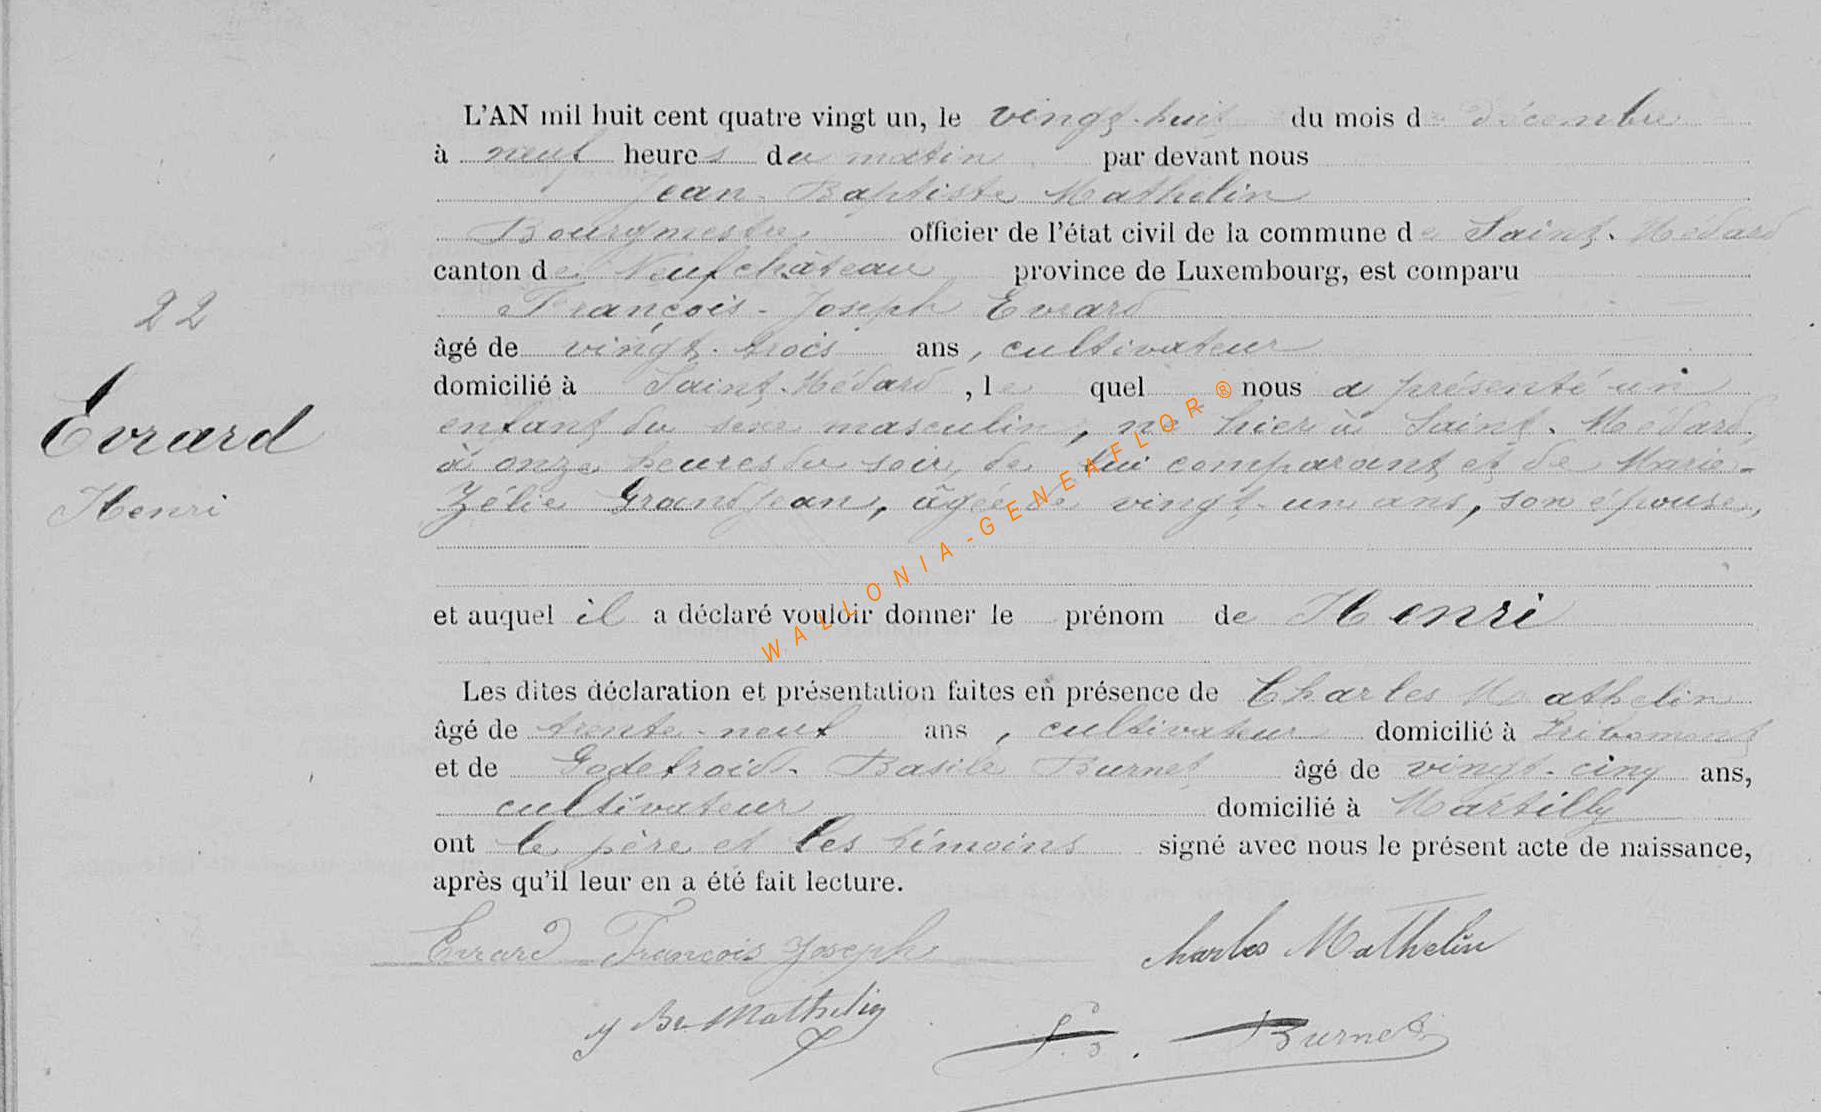 L'AN mil huit cent quatre vingt un, le vingt-huit du mois de décembre
à neuf heures du matin par devant nous
Jean-Baptiste Mathelin
Bourgmestre officier de l'état civil de la commune de Saint-Médard
canton de Neufchâteau province de Luxembourg, est comparu
François-Joseph Evrard
âgé de vingt-trois ans, cultivateur
domicilié à Saint-Médard, lequel nous a présenté un
enfant du sexe masculin, né hier à Saint-Médard,
à onze heures du soir, de lui comparant et de Marie-
Zélie Grandjean, âgée de vingt-un ans, son épouse,
et auquel il a déclaré vouloir donner le prénom de Henri
Les dites déclaration et présentation faites en présence de Charles Mathelin
âgé de trente-neuf ans, cultivateur domicilié à Fribomont
et de Godefroid-Basile Burnet âgé de vingt-cinq ans,
cultivateur domicilié à Martilly
ont le père et les témoins signé avec nous le présent acte de naissance,
après qu'il leur en a été fait lecture.
22
Evrard
Henri
Evrard François Joseph
Charles Mathelin
J Bte Mathelin
Burnet
WALLONIA-GENEAFLOR®